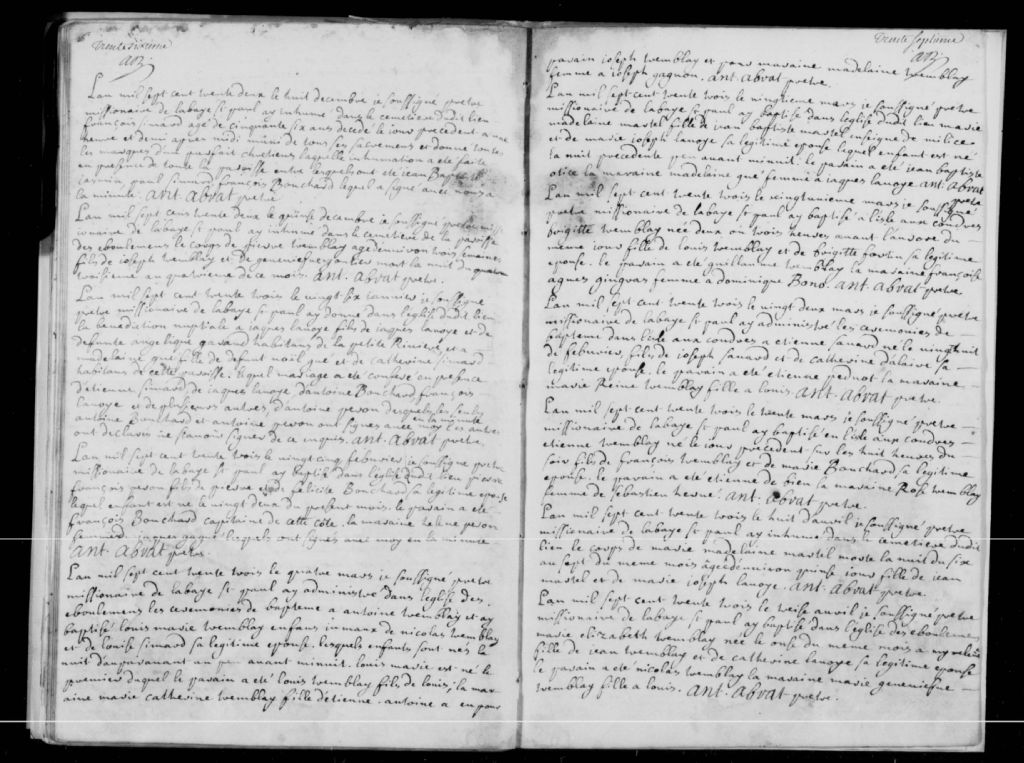 trente sixieme
Lan mil sept cent trente deux le huit decembre je soussigné pretre
missionaire de labaye st paul ay inhumé dans le cemetiere dudit lien
francois simard agé de cinquante six ans decedé le jour precedent a une
heure et demi apres midi muni de tous ses sacremens et donné toutes
les marques d'un parfait chretiens laquelle inhumation a ete faite
en presence de toute la paroisse entre lesquels ont ete jean Baptiste
paul simard francois Bouchard lequel a signé avec nous a
la minute. ant. abvat pretre.
Lan mil sept cens trente deux le quinse decembre je soussigné pretre miss
ionaire de labaye st paul ay inhumé dans le cemetiere de la paroisse
des eboulemens le corps de pierre tremblay agé denviron trois semaines
fils de joseph tremblay et de genevieve mort la nuit du
troisieme au quatrieme de ce mois. ant. abvat pretre.
Lan mil sept cent trente trois le vingt six janvier je soussigné
pretre missionaire de labaye st paul ay donné dans leglise dudit lien
la benediction nuptiale a jaques lavoye fils de jaques lavoye et de
defunte angelique garand habitans de la petite Riviere et a
madelaine gué fille de defunt noel gué et de catherine simard
habitans de cette paroisse. lequel mariage a ete contracté en presence
d'etienne simard de jaques lavoye d'antoine Bouchard francois
lavoye et de plusieurs autres, d'antoine peron desquels les seuls
antoine Bouchard et antoine peron ont signés avec moy en la minute les autres
ont declarés ne scavoir signer de ce enquis. ant. abvat pretre.
Lan mil sept cent trente trois le vingt cinq febvrier je soussigné pretre
missionaire de labaye st paul ay baptisé dans leglise dudit lien pierre
francois peron fils de pierre et de felicité Bouchard sa legitime epouse
lequel enfant est ne le vingt deux du present mois. le parain a ete
francois Bouchard capitaine de cette côte, la maraine helene peron
femme a jaques gagné lesquels ont signés avec moy en la minute
ant. abvat pretre.
Lan mil sept cent trente trois le quatre mars je soussigné pretre
missionaire de labaye st paul ay administré dans leglise des
eboulemens les ceremonies de bapteme a antoine tremblay et ay
baptisé louis marie tremblay enfans jumaux de nicolas tremblay
et de louise simard sa legitime epouse. lesquels enfants sont nés la
nuit d'auparavant un peu avant minuit. louis marie est né le
premier duquel le parain a ete louis tremblay fils de louis, la mar
aine marie catherine tremblay fille detienne. antoine a eu pour
trente septieme
parain joseph tremblay et pour maraine madelaine tremblay
femme a joseph gagnon. ant. abvat pretre.
Lan mil sept cent trente trois le vingtieme mars je soussigné pretre
missionaire de labaye st paul ay baptisé dans leglise dudit lieu marie
madelaine martel fille de jean baptiste martel enseigne de milice
et de marie joseph lavoye sa legitime epouse lequel enfant est né
la nuit precedente peu avant minuit. le parain a ete jean baptiste
la maraine madelaine gué femme a jaques lavoye ant. abvat pretre
Lan mil sept cent trente trois le vingtunieme mars je soussigné
pretre missionaire de labaye st paul ay baptisé a lisle aux coudres
brigitte tremblay née deux ou trois heures avant laurore du
meme jour fille de louis tremblay et de brigitte fortin sa legitime
epouse. le parain a eté guillaume tremblay la maraine francoise
agnes gingras femme a dominique Bono. ant. abvat pretre.
Lan mil sept cent trente trois le vingt deux mars je soussigné pretre
missionaire de labaye st paul ay administré les ceremonies de
bapteme dans lisle aux coudres a etienne savard né le vingthuit
de febvrier, fils de joseph savard et de catherine dalaire sa
legitime epouse. le parain a eté etienne la maraine
marie Reine tremblay fille a louis. ant. abvat pretre.
Lan mil sept cent trente trois le trente mars je soussigné pretre
missionaire de labaye st paul ay baptisé en lisle aux coudres
etienne tremblay né le jour precedent sur les huit heures du
soir fils de francois tremblay et de marie Bouchard sa legitime
epouse. le parain a ete etienne de bien la maraine Rose tremblay
femme de sebastien hervé. ant. abvat pretre.
Lan mil sept cent trente trois le huit d'avril je soussigné pretre
missionaire de labaye st paul ay inhumé dans le cemetiere dudit
lieu le corps de marie madelaine martel morte la nuit du six
au sept du meme mois ageé denviron quinse jours fille de jean
martel et de marie joseph lavoye. ant. abvat pretre.
Lan mil sept cent trente trois le treise avril je soussigné pretre
missionaire de labaye st paul ay baptisé dans leglise des eboulemens
marie elizabeth tremblay neé le onse du meme mois a
fille de jean tremblay et de catherine lavoye sa legitime epouse
le parain a eté nicolas tremblay la maraine marie genevieve
tremblay fille a louis. ant. abvat pretre.